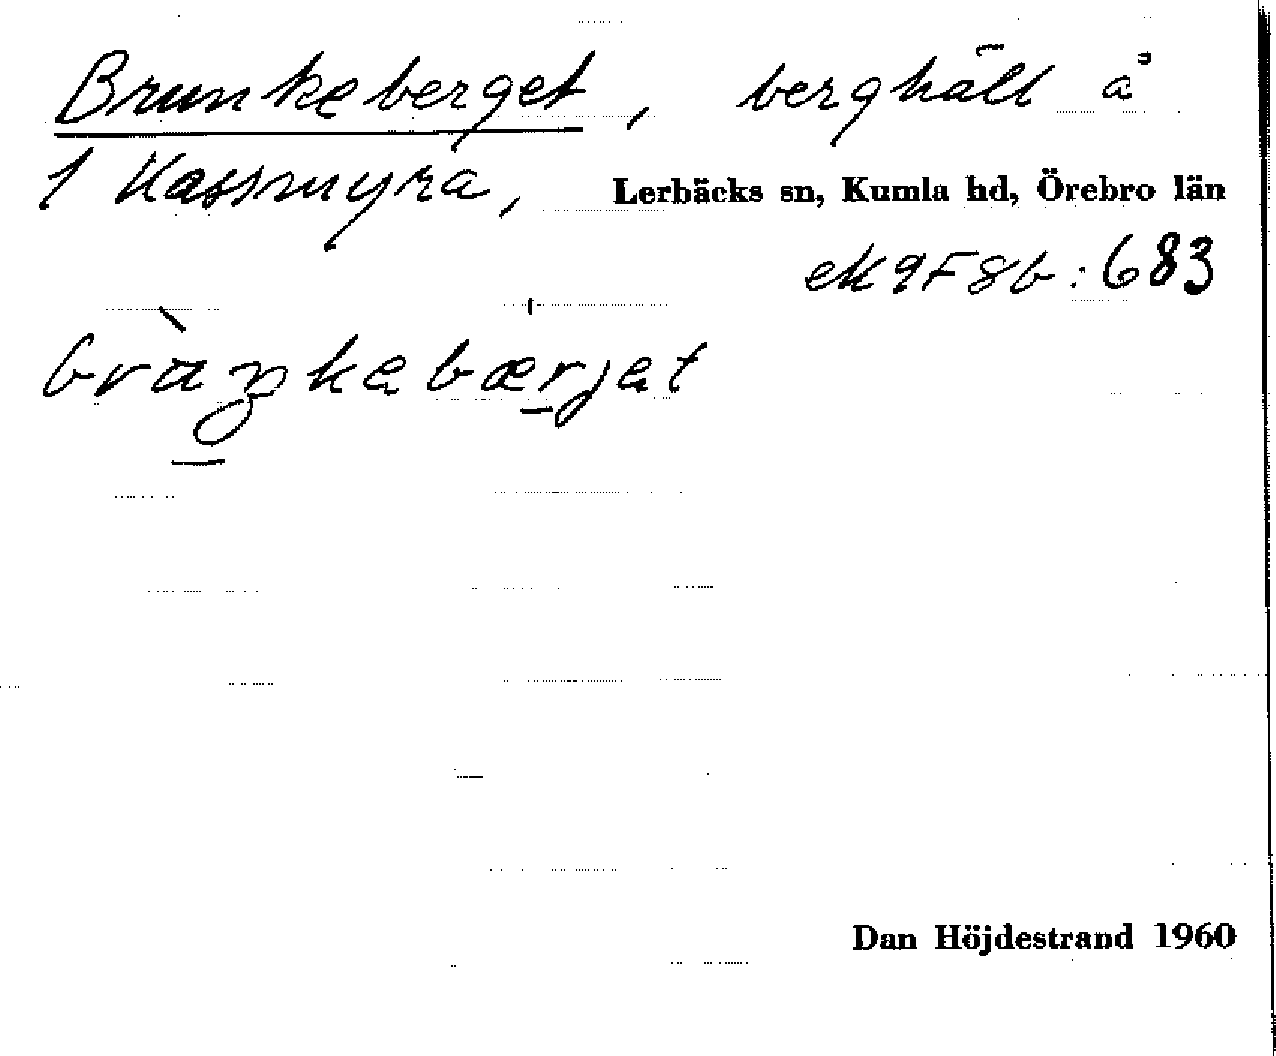 Brunkeberget, berghäll å
1 Kassmyra, Lerbäcks sn, Kumla hd, Örebro län
ek 9F8b:683
bràŋkebærjet
Dan Höjdestrand 1960